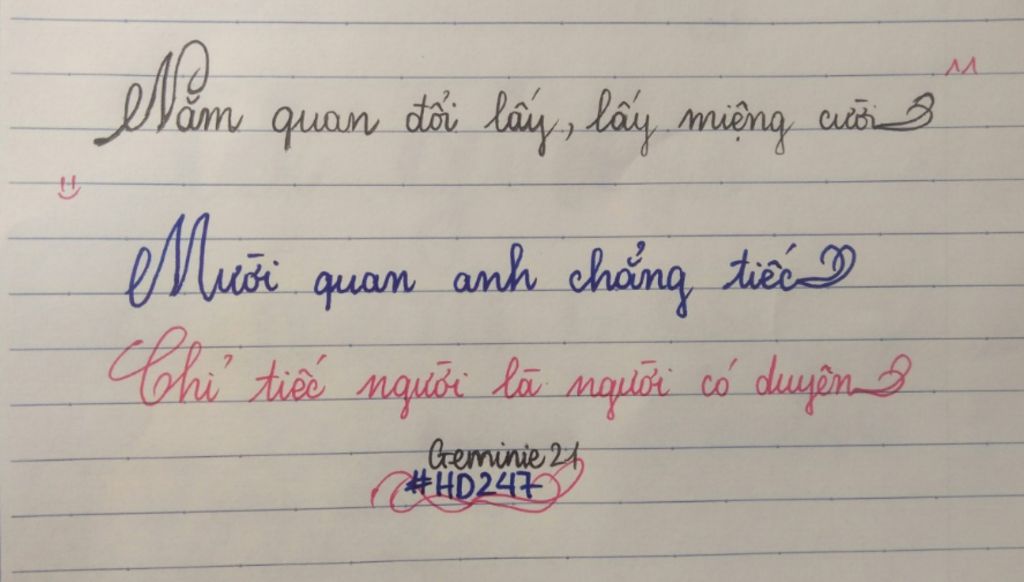 Năm quan đổi lấy, lấy miệng cười
Mười quan anh chẳng tiếc
Chỉ tiếc người là người có duyên
Geminie 21
#HD247